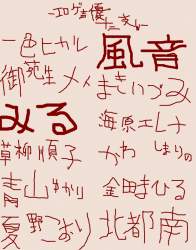 -エロゲ声優
一色ヒカル
風音
御苑生メイ
まきいづみ
みる
海原エレナ
草柳順子
かわしまりの
青山ゆかり
金田まひる
夏野こおり
北都南